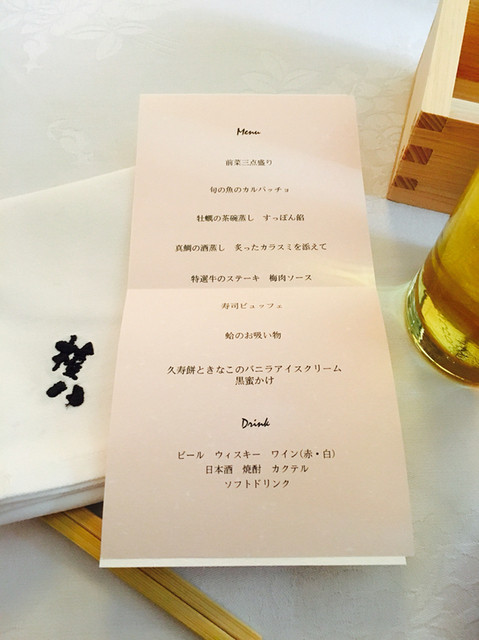 Menu
前菜三点盛り
旬の魚のカルパッチョ
牡蠣の茶碗蒸し すっぽん餡
真鯛の酒蒸し 炙ったカラスミを添えて
特選牛のステーキ 梅肉ソース
寿司ビュッフェ
蛤のお吸い物
久寿餅ときなこのバニラアイスクリーム
黒蜜かけ
Drink
ビール ウィスキー ワイン(赤・白)
日本酒 焼酎 カクテル
ソフトドリンク